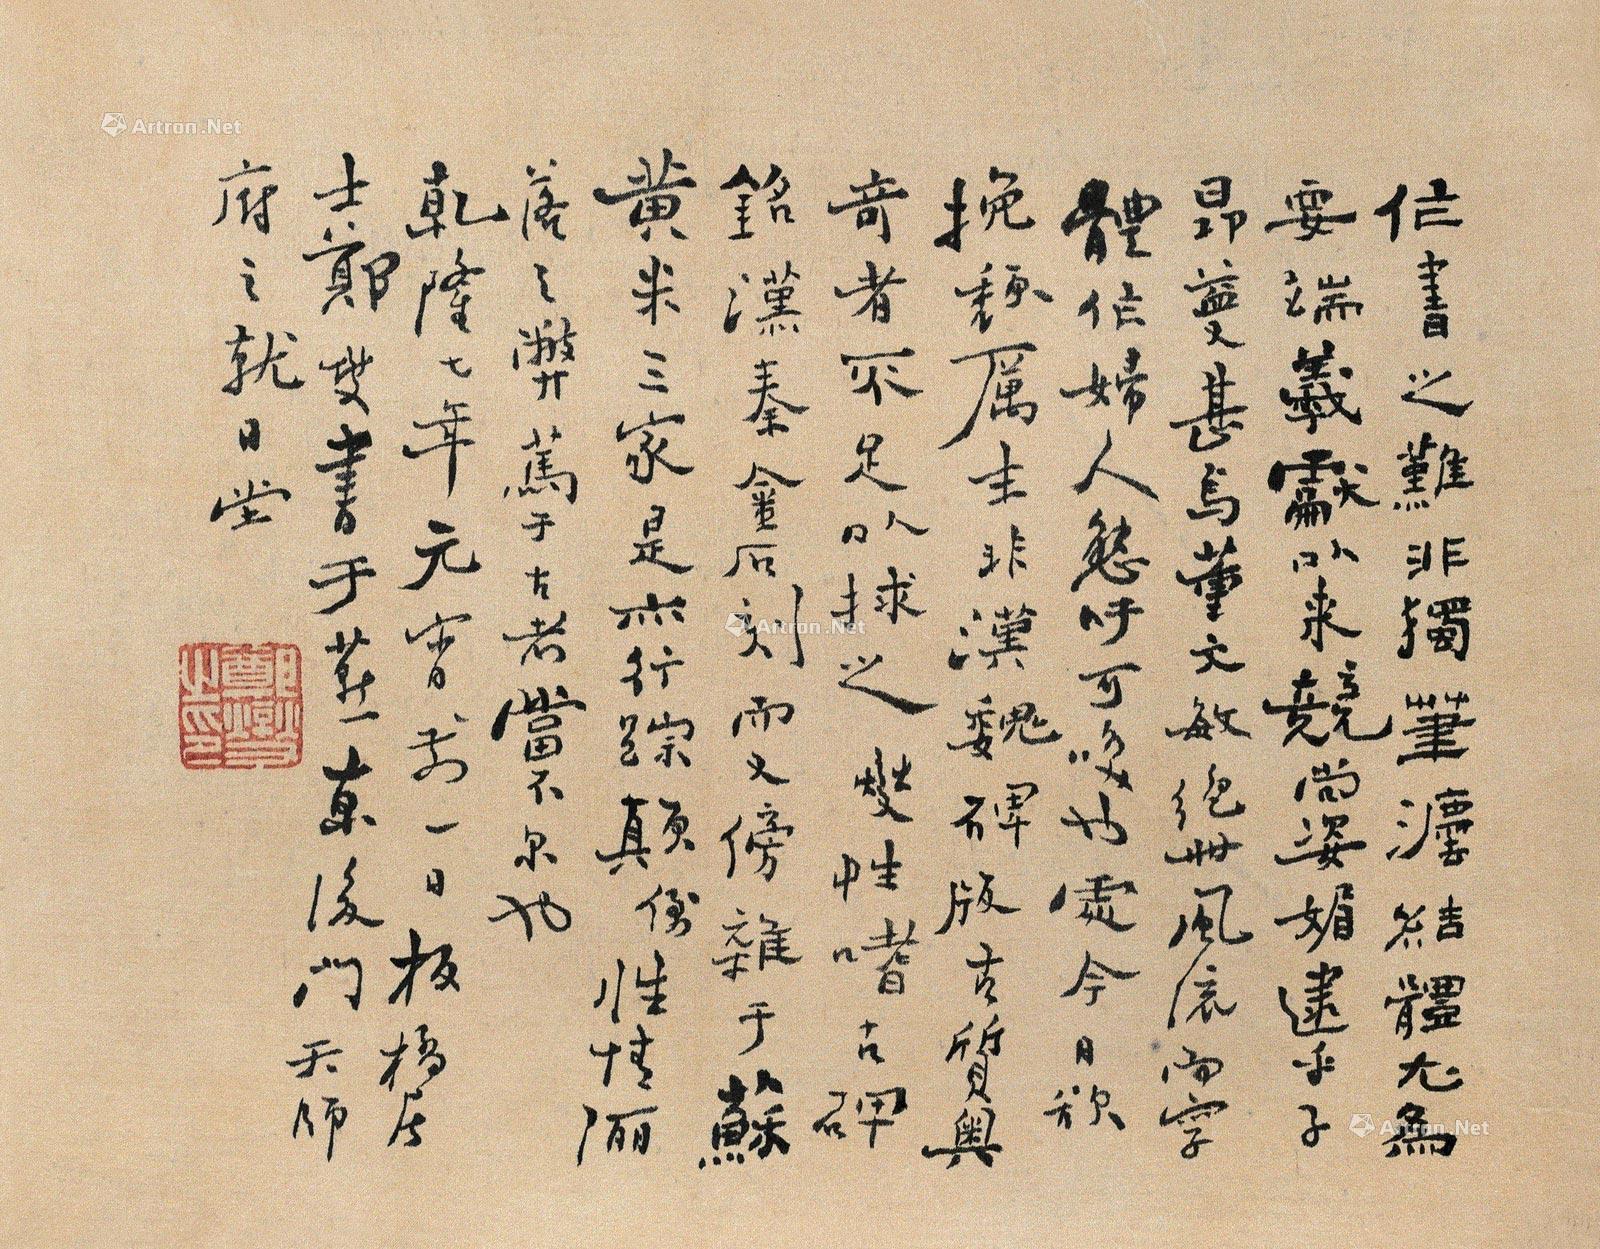 作書之難非獨筆灋結體尤為
要端羲獻以來競尚姿媚逮乎子
昂益變甚焉董文敏絕世風流而字
體作婦人態吁可嘆也處今日欲
挽頹厲主非漢魏碑版古質奧
奇者不足以捄之燮性嗜古碑
銘漢秦金石刻而又傍雜于蘇
黃米三家是亦行蹤顛倒性情
落之弊蔫于古者當不尔也
乾隆七年元宵前一日板橋居
士鄭燮書于燕京後門天師
府之就日堂
鄭燮之印
Artron.Net
Artron.Net
Artron.Net